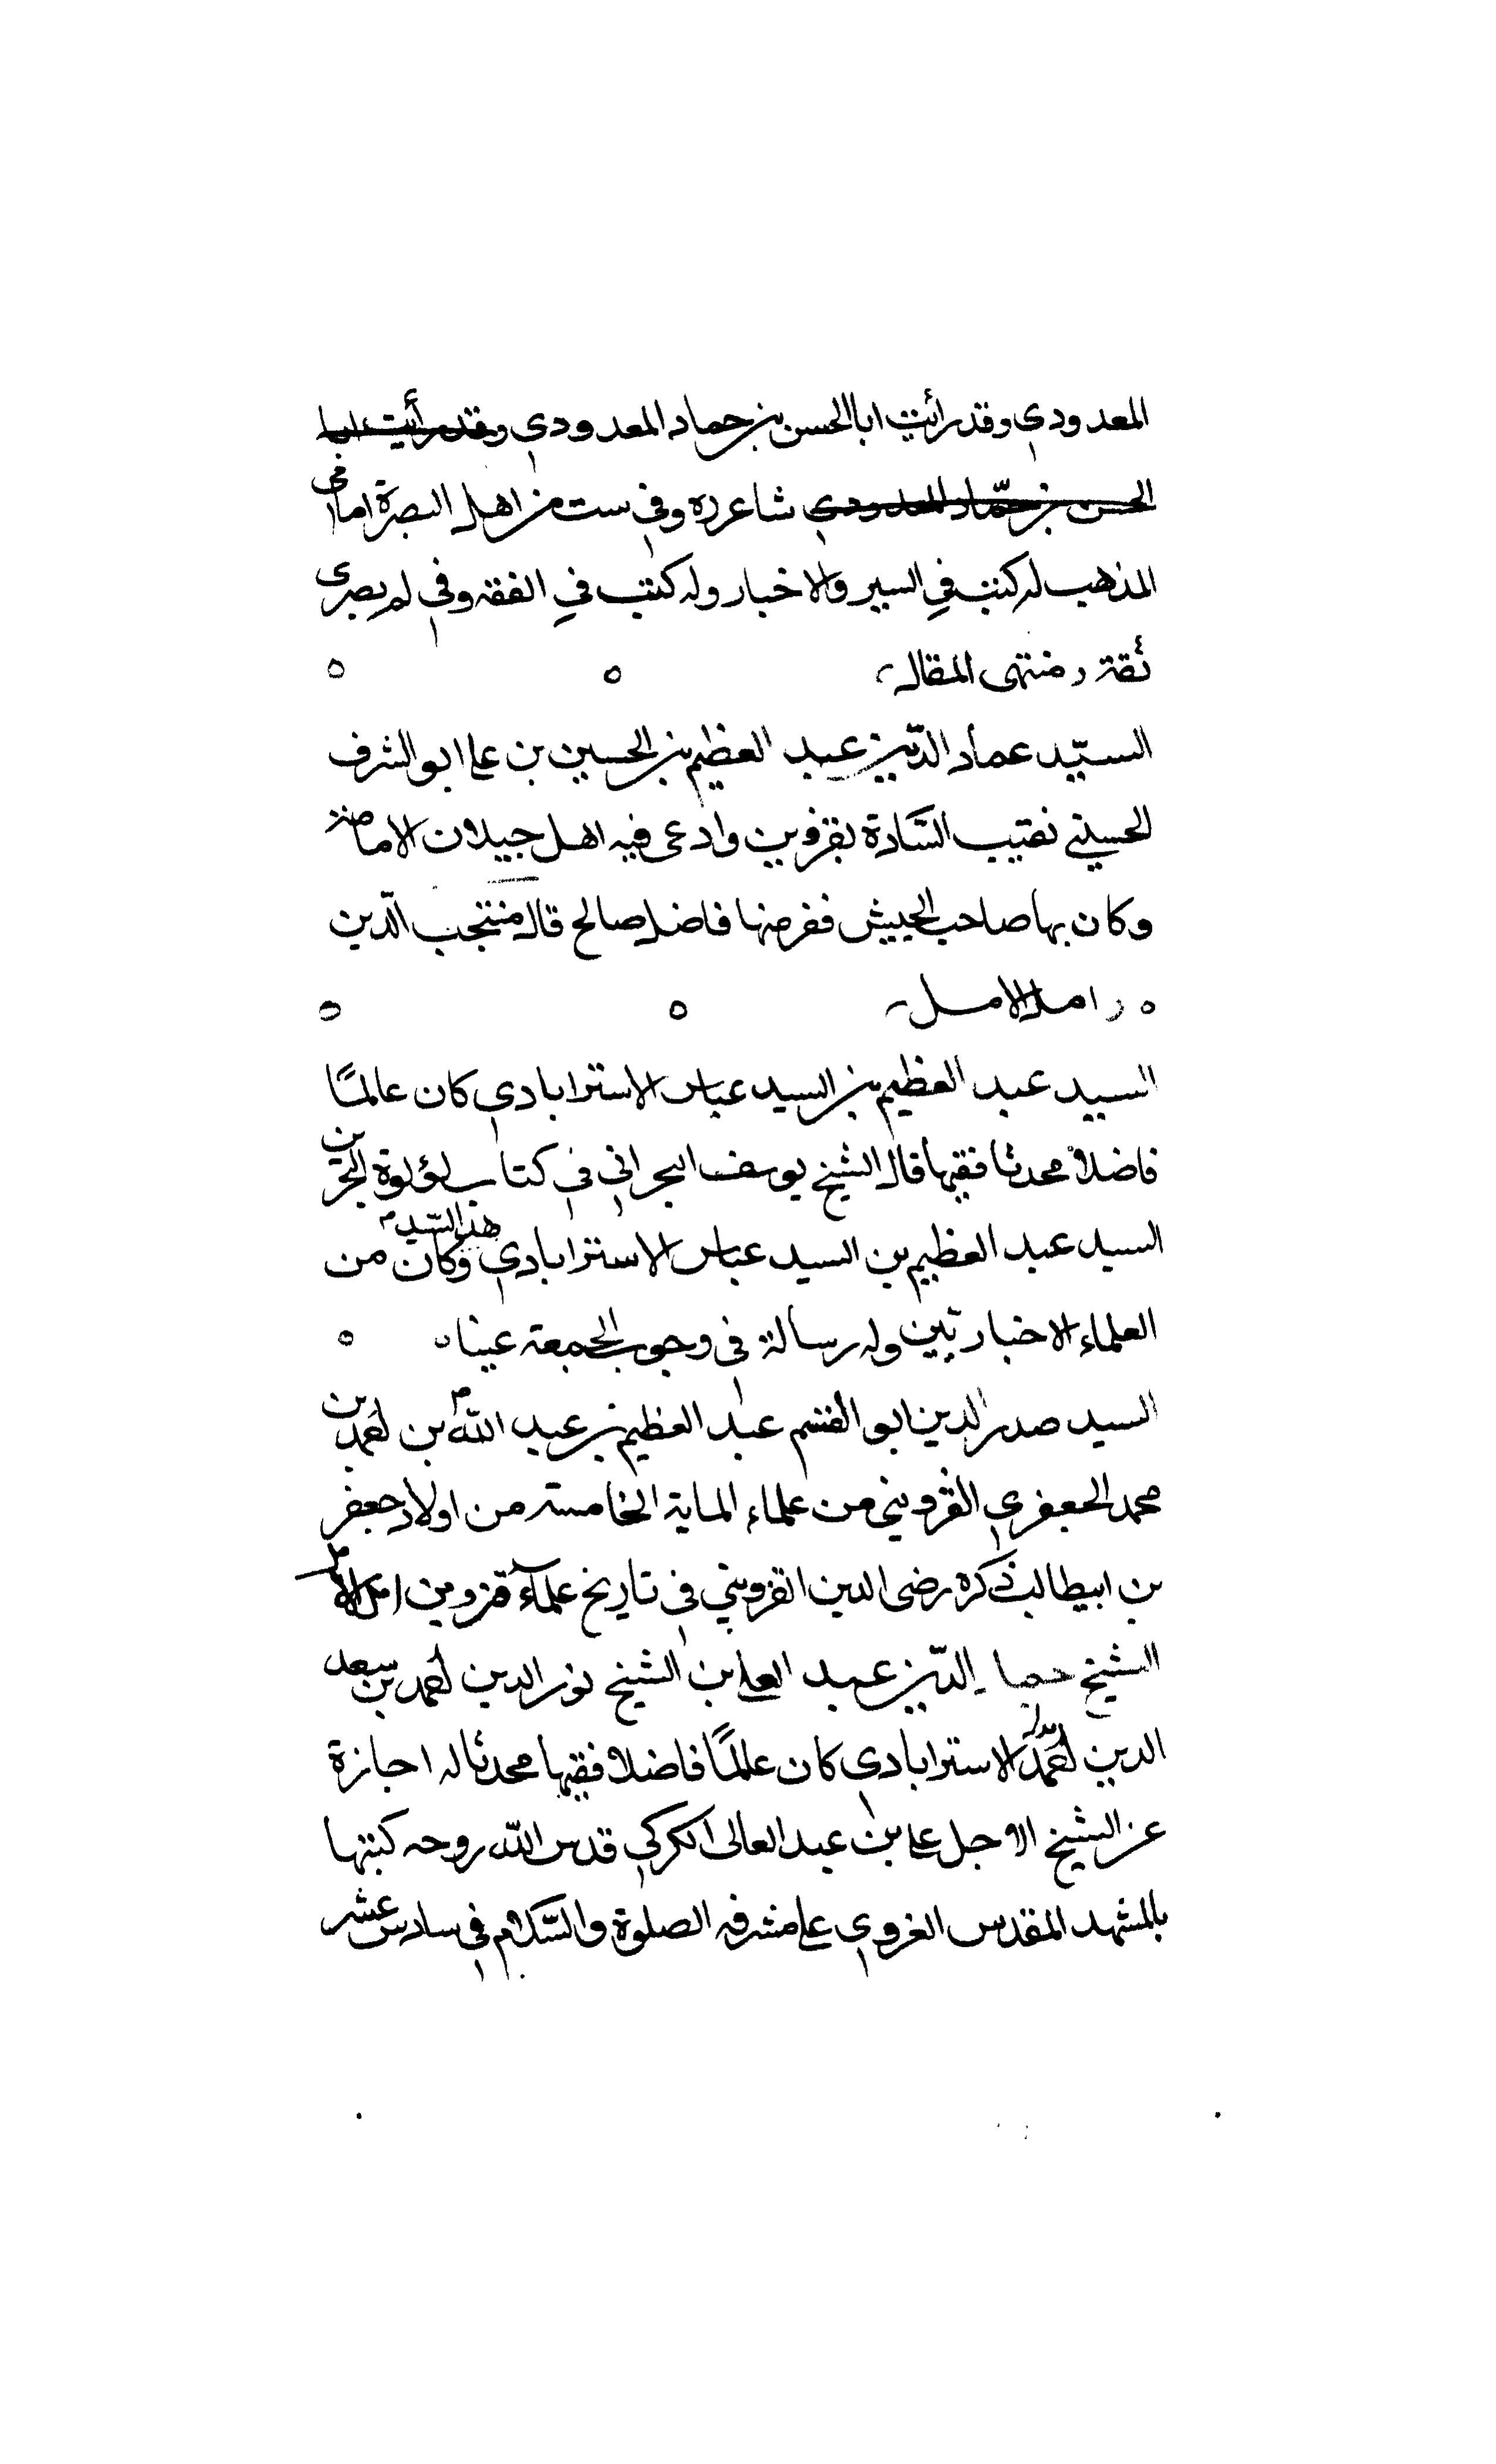 المعدودي وقد رأيت ابا الحسن بن حماد المعدودي وقد رأيت ابا
الحسن بن حمّاد المعدودي شاعر ره وفي ست من اهل البصرة امامي
المذهب له كتب في السير والاخبار وله كتب في الفقه وفي لم بصرى
ثقة ر منتهى المقال
السيّد عماد الدّين عبد العظيم بن الحسين بن على ابو الشرف
الحسيني نقيب السّادة بقزوين وادعى فيه اهل جيلان الامامة
وكان بها صاحب الجيش ففر منها فاضل صالح قال منتجب الدّين
ر امل الامل
السيد عبد العظيم بن السيد عباس الاسترابادي كان عالمًا
فاضلا محدثا فقيها قال الشيخ يوسف البحراني في كتاب لؤلؤة البحرين
السيد عبد العظيم بن السيد عباس الاسترابادي وكان هذا السّيد من
العلماء الاخباريّين وله رسالة في وجوب الجمعة عينا
السيد صدر الدين ابو القسم عبد العظيم بن عبد الله بن احمد بن
محمد الجعفري القزويني من علماء الماية الخامسة من اولاد جعفر
بن ابيطالب ذكره رضى الدين القزويني في تاريخ علمآء قزوين امل الامل
الشيخ الدّين عبد العلى بن الشيخ نور الدين احمد بن سعد
الدين محمد الاسترابادي كان عالمًا فاضلا فقيها محدثا له اجازة
عن الشيخ الاجل على بن عبد العالى الكركي قدس الله روحه كتبتها
بالمشهد المقدس الغروي على مشرفه الصلوة والسّلام في سادس عشر